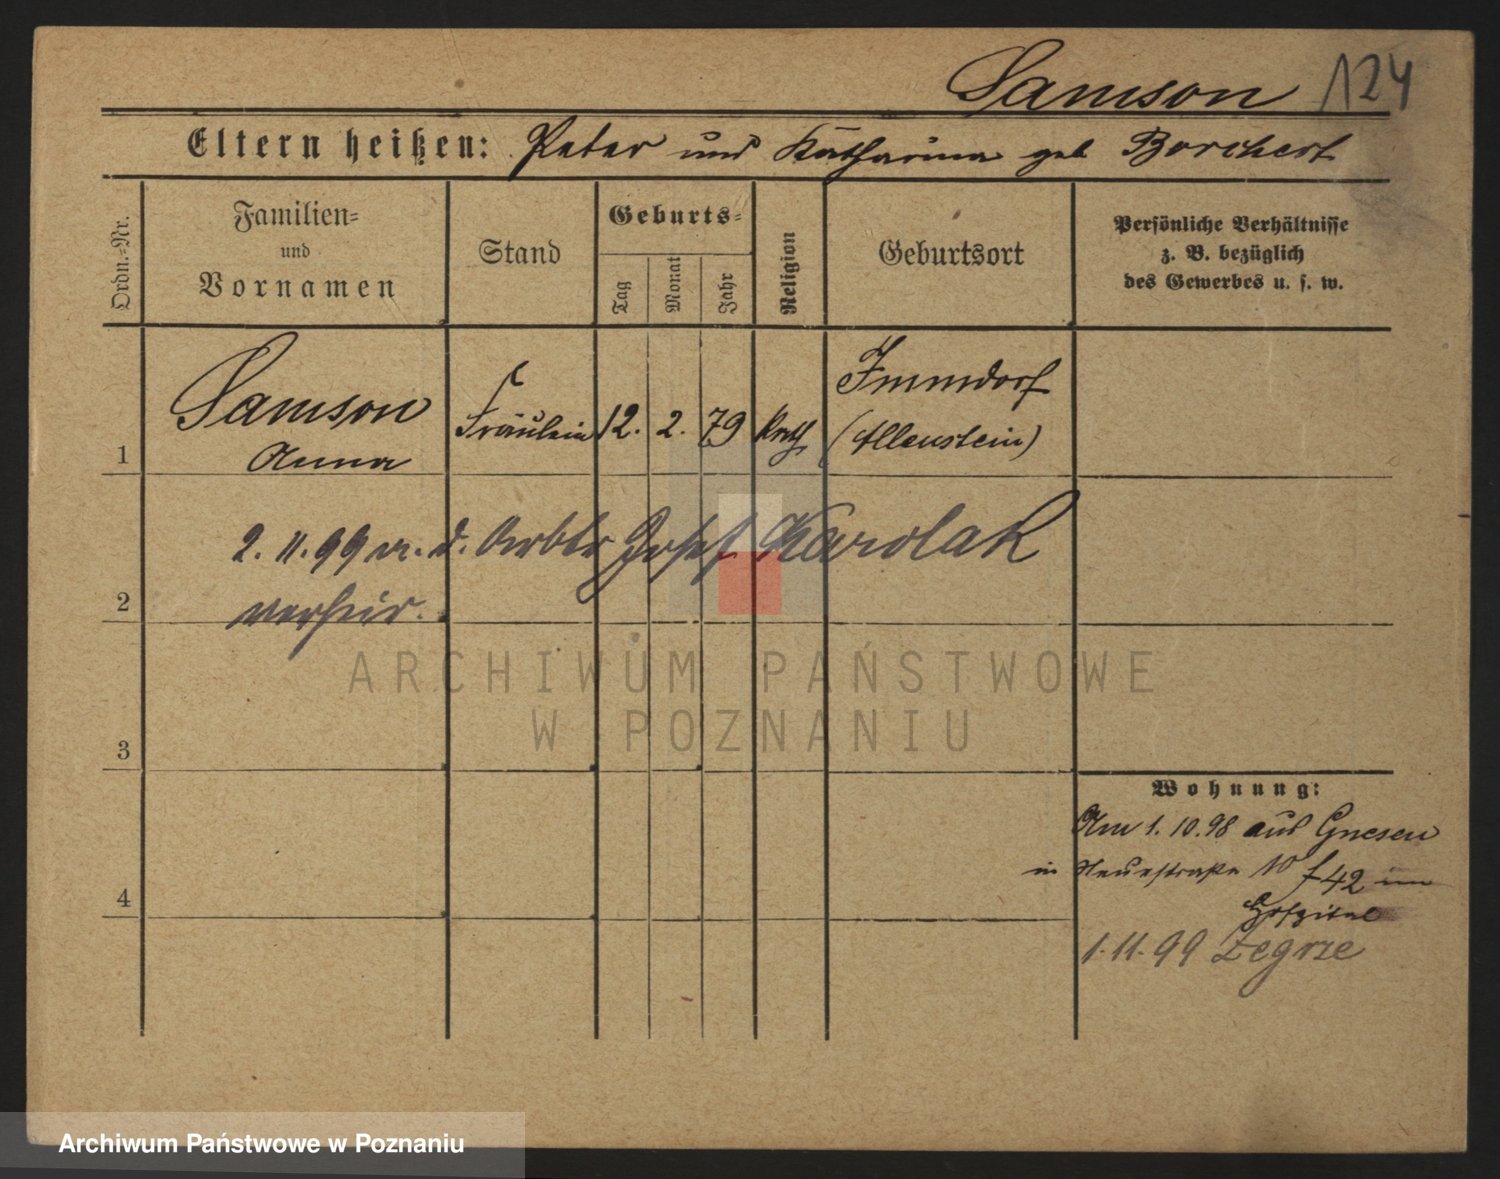 Samson 124
Eltern heißen: Peter und Katharina geb Borchert
Ordn.-Nr.
Familien-
und
Vornamen
Stand
Geburts-
Tag
Monat
Jahr
Religion
Geburtsort
Persönliche Verhältnisse
z. B. bezüglich
des Gewerbes u. s. w.
1
Samson
Anna
Fräulein
12. 2. 79
kath
Jmmdorf
(Allenstein)
2
2. 11. 99 m. d. Arbtr Josef Karolak
verheir.
3
4
Wohnung:
Am 1. 10. 98 aus Gnesen
in Neuestraße 10 f 42 im
Hospital
1. 11. 99 Zegrze
ARCHIWUM PAŃSTWOWE
W POZNANIU
Archiwum Państwowe w Poznaniu